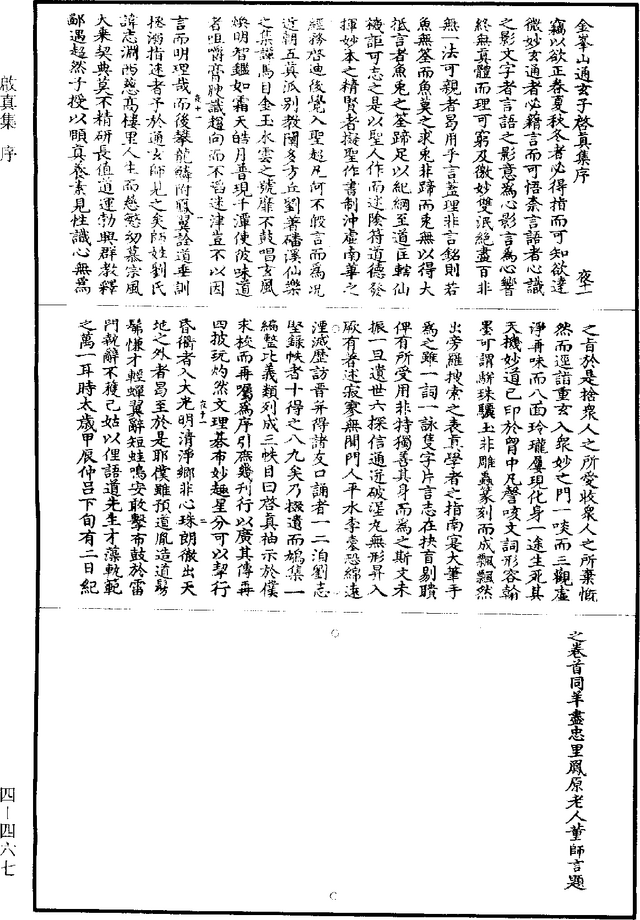 金峯山通玄子啓真集序
夜一
竊以欲正春夏秋冬者必得指而可知欲達
微妙玄通者必藉言而可悟柰言語者心識
之影文字者言語之影意為心影言為心響
終無真體而理可窮及微妙雙泯絕盡百非
無一法可觀者曷用乎言蓋理非言銘則若
魚無筌而魚莫之求兎非蹄而兎無以得大
抵言者魚兎之筌蹄足以紀綱至道匡轄仙
褾詎可忘之是以聖人作而述陰符道德發
揮妙本之精賢者擬聖作書制沖虛南華之
經務啓迪後覺入聖超凡何不假言而為況
近朝五真派別教闡多方丘劉著磻溪仙樂
之集譚馬目金玉水雲之號靡不鼓唱玄風
煥明智鑑如霜天皓月普現千潭使彼味道
者咀嚼膏腴識趨向而不滔迷津豈不以因
言而明理哉而後攀龍鱗附鳳翼詮道垂訓
拯溺指迷者予於通玄師見之矣師姓劉氏
諱志淵西慈高樓里人生而慈慜幼慕宗風
大乘契典莫不精研長值道運勃興群教釋
鄙遇超然子授以頤真養素見性識心無為
之旨於是捨衆人之所受收衆人之所棄慨
然而逕詣重玄入衆妙之門一啖而三觀虛
淨再味而八面玲瓏屢現化身一途生死其
天機妙道已印於胷中凡謦咳文詞形容翰
墨可謂缾珠驪土非雕蟲篆刻而成飄飄然
出旁羅搜索之表真學者之指南寔大筆手
為之雖一詞一詠隻字片言志在扶盲剔聵
俾有所受用非持獨善其身而為之斯文未
振一旦遺世六探信通逆破涅丸無形昇入
厥有著述寂寥無聞門人平水李臺恐綿遠
湮滅歷訪晉并得諸友口誦者一二洎劉志
堅錄帙者十得之八九矣乃掇遺而鳩集一
編整比義類列成三帙目曰啓真袖示於僕
求校而再囑為序引庶幾刋行以廣其傳再
四披玩灼然文理棊布妙趣星分可以挈行
昏衢者入大光明清淨鄉非心珠朗徹出天
地之外者曷至於是耶僕雖預道胤造道髣
髴慊才輕蟬翼辭短蛙鳴安敢擊布鼓於雷
門執辭不獲已姑以俚語道先生才藻軌範
之萬一耳時太歲甲辰仲呂下旬有二日紀
之卷首同羊盡忠里鳳原老人董師言題
啟真集 序
四－四六七